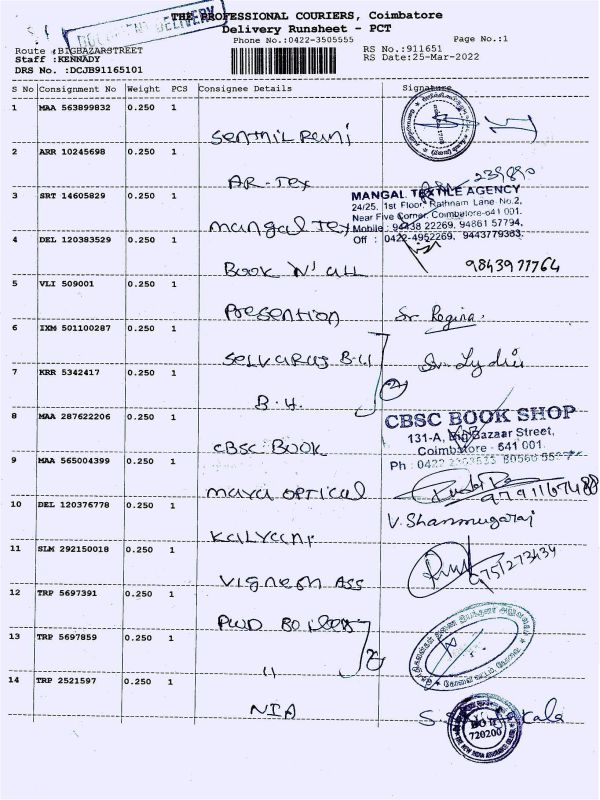 THE PROFESSIONAL COURIERS, Coimbatore
DOCUMENT DELIVERY
Delivery Runsheet - PCT
Phone No.:0422-3505555
Page No.:1
Route :BIGBAZARSTREET
RS No.:911651
Staff :KENNADY
RS Date:25-Mar-2022
DRS No. :DCJB91165101
S No Consignment No Weight PCS Consignee Details Signature
1 MAA 563899832 0.250 1
Senthil Rani
2 ARR 10245698 0.250 1
AR-Tex
239890
3 SRT 14605829 0.250 1
Mangal Tex
MANGAL TEXTILE AGENCY
24/25, 1st Floor, Rathnam Lane No.2,
Near Five Corner, Coimbatore-641 001.
Mobile : 94438 22269, 94861 57794,
Off : 0422-4952269, 9443779363.
4 DEL 120383529 0.250 1
Book N' all
9843977764
5 VLI 509001 0.250 1
Presention
Sr. Regina.
6 IXM 501100287 0.250 1
Selvaraj B.U
Sr. Lydia
7 KRR 5342417 0.250 1
2
B.U.
8 MAA 287622206 0.250 1
CBSC Book
CBSC BOOK SHOP
131-A, Big Bazaar Street,
Coimbatore - 641 001.
Ph : 0422
9 MAA 565004399 0.250 1
Maya optical
10 DEL 120376778 0.250 1
Kalyani
V. Shanmugaraj
11 SLM 292150018 0.250 1
Vignesh Ass
9751273434
12 TRP 5697391 0.250 1
PWD
13 TRP 5697859 0.250 1
"
2
14 TRP 2521597 0.250 1
NIA
720200